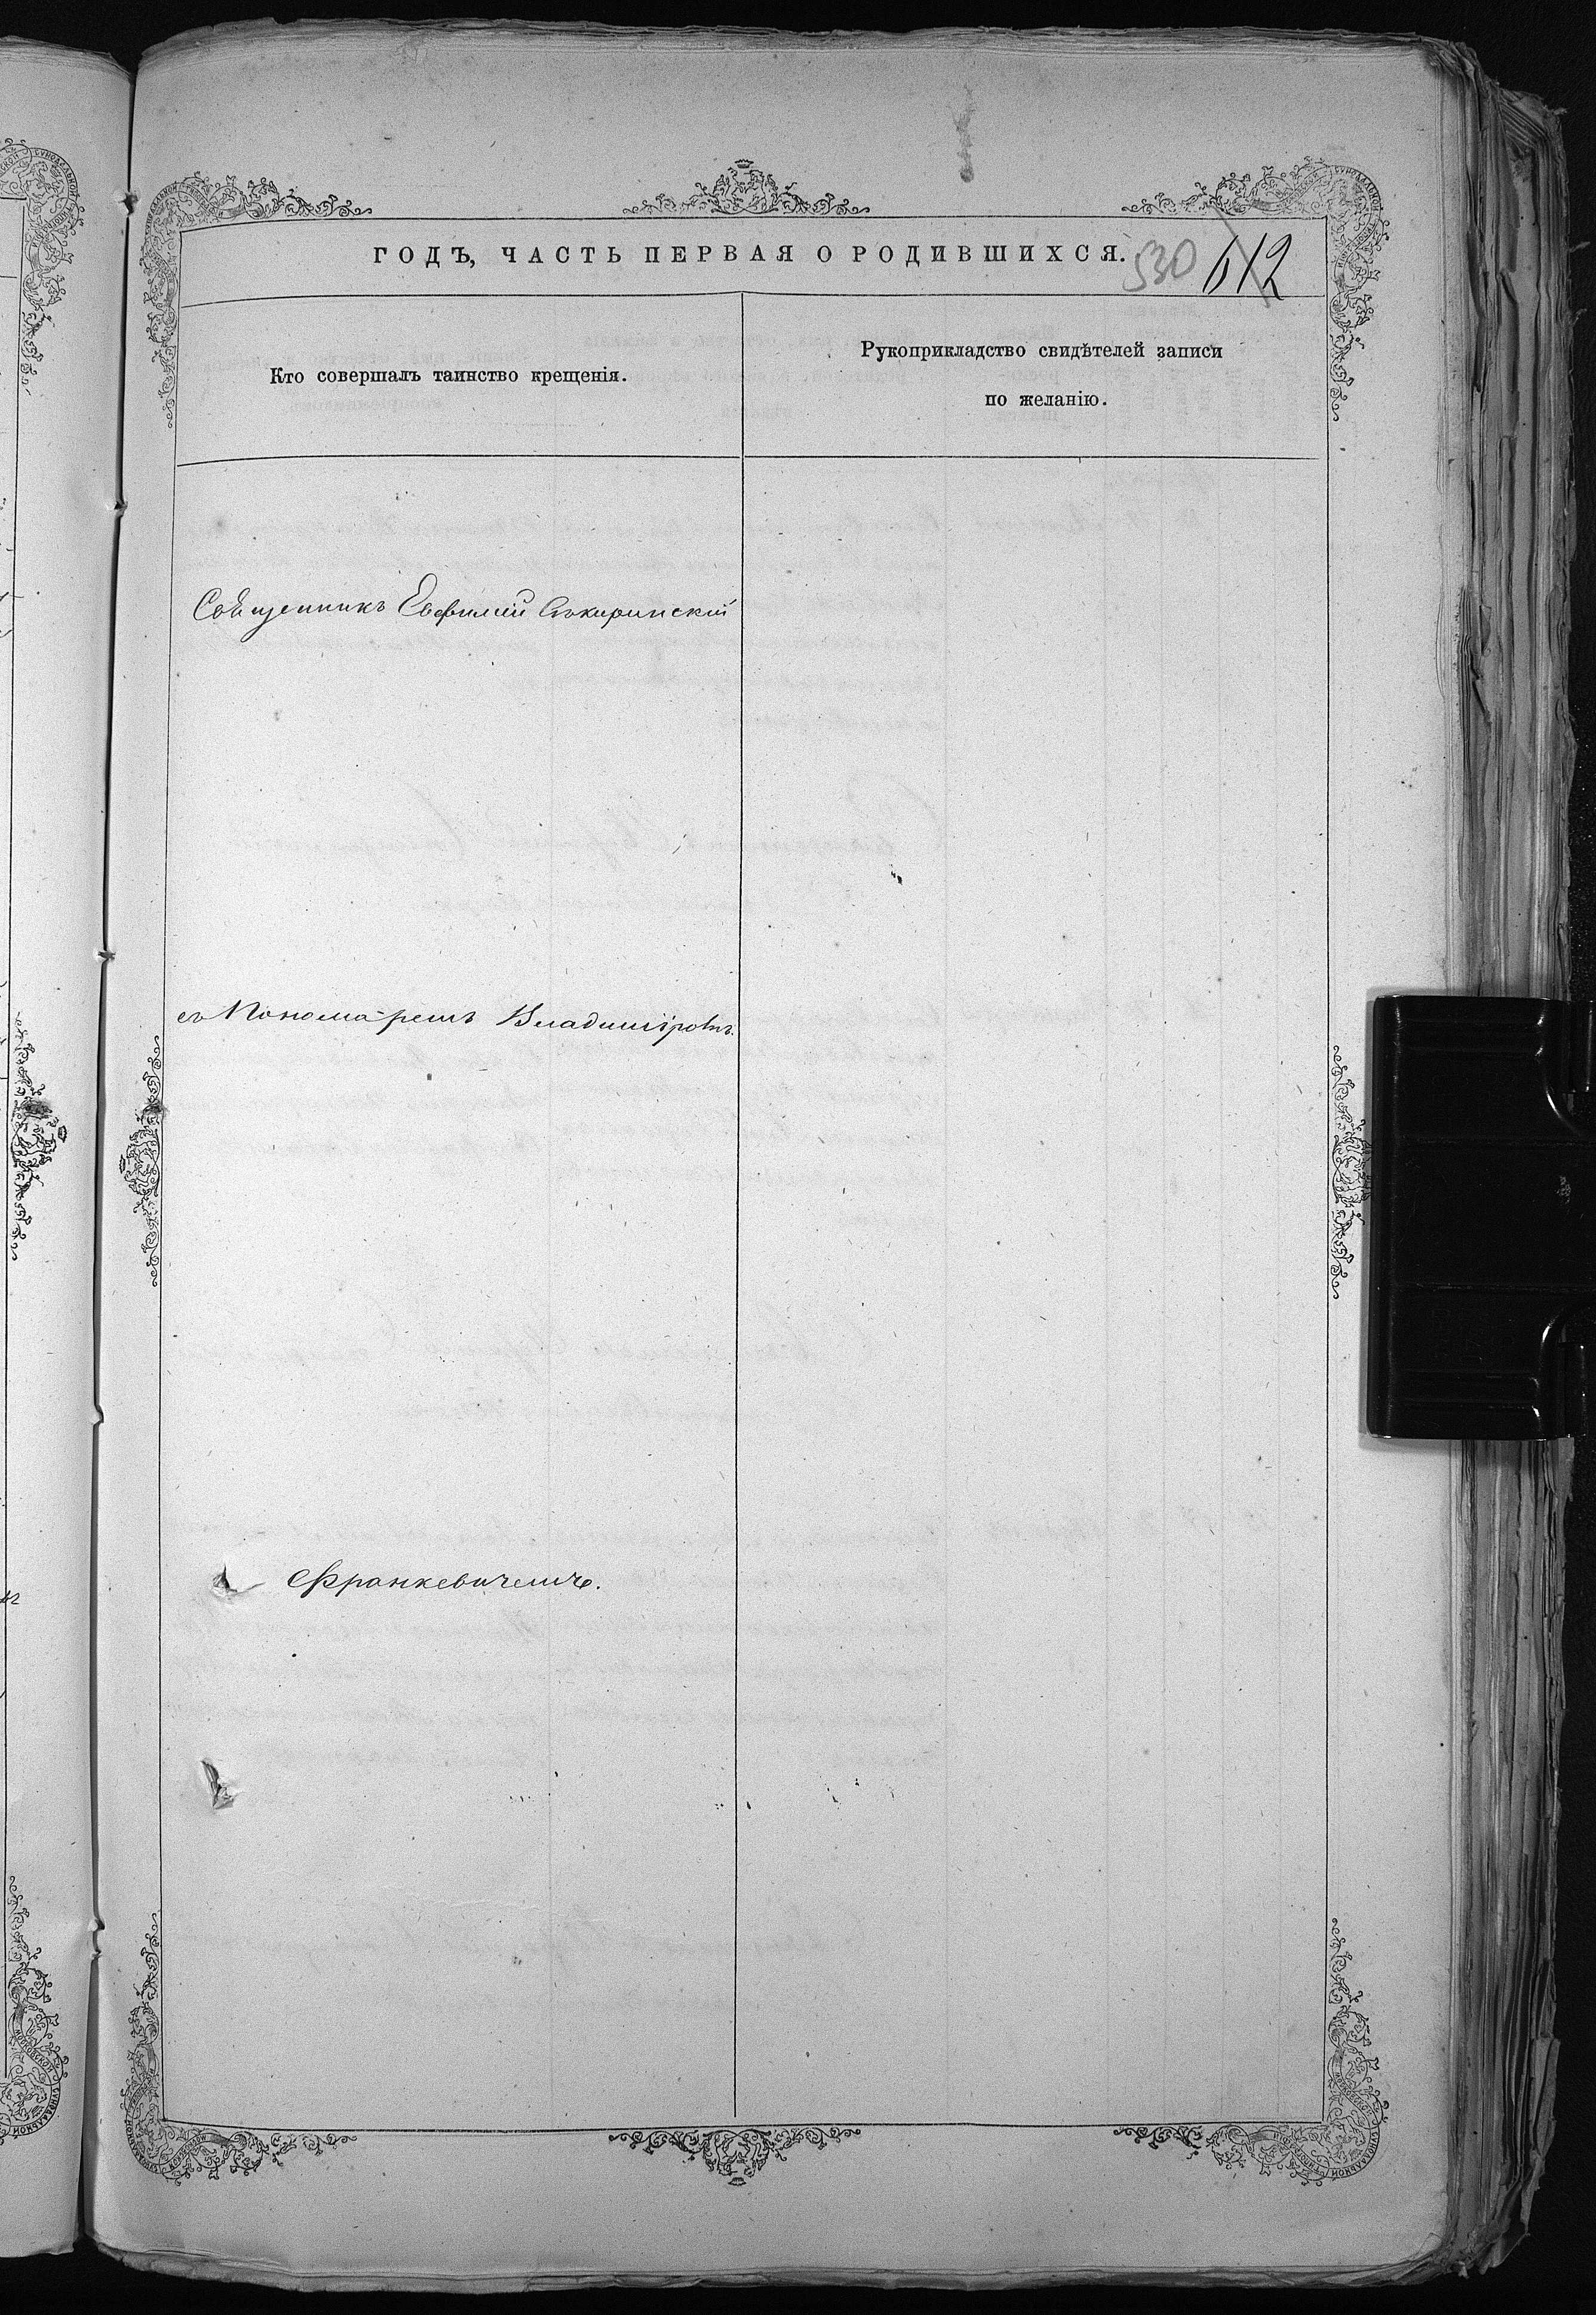 ГОДЪ, ЧАСТЬ ПЕРВАЯ О РОДИВШИХСЯ.
530 612
Кто совершалъ таинство крещенія.
Рукоприкладство свидѣтелей записи
по желанію.
Священникъ Евфимій Сѣкиринскій
съ Пономаремъ Владиміромъ
Франкевичемъ.